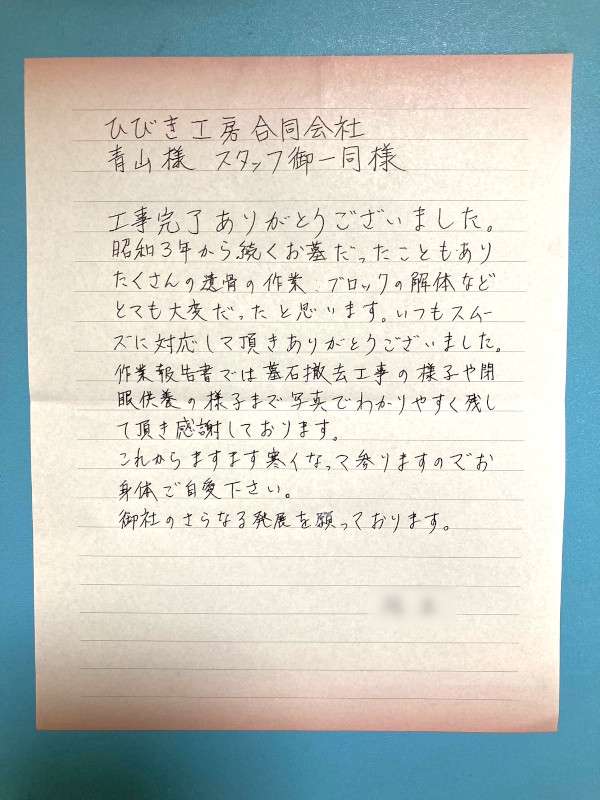 ひびき工房合同会社
青山様 スタッフ御一同様
工事完了ありがとうございました。
昭和3年から続くお墓だったこともあり
たくさんの遺骨の作業、ブロックの解体など
とても大変だったと思います。いつもスムー
ズに対応して頂きありがとうございました。
作業報告書では墓石撤去工事の様子や閉
眼供養の様子まで写真でわかりやすく残し
て頂き感謝しております。
これからますます寒くなって参りますのでお
身体ご自愛下さい。
御社のさらなる発展を願っております。